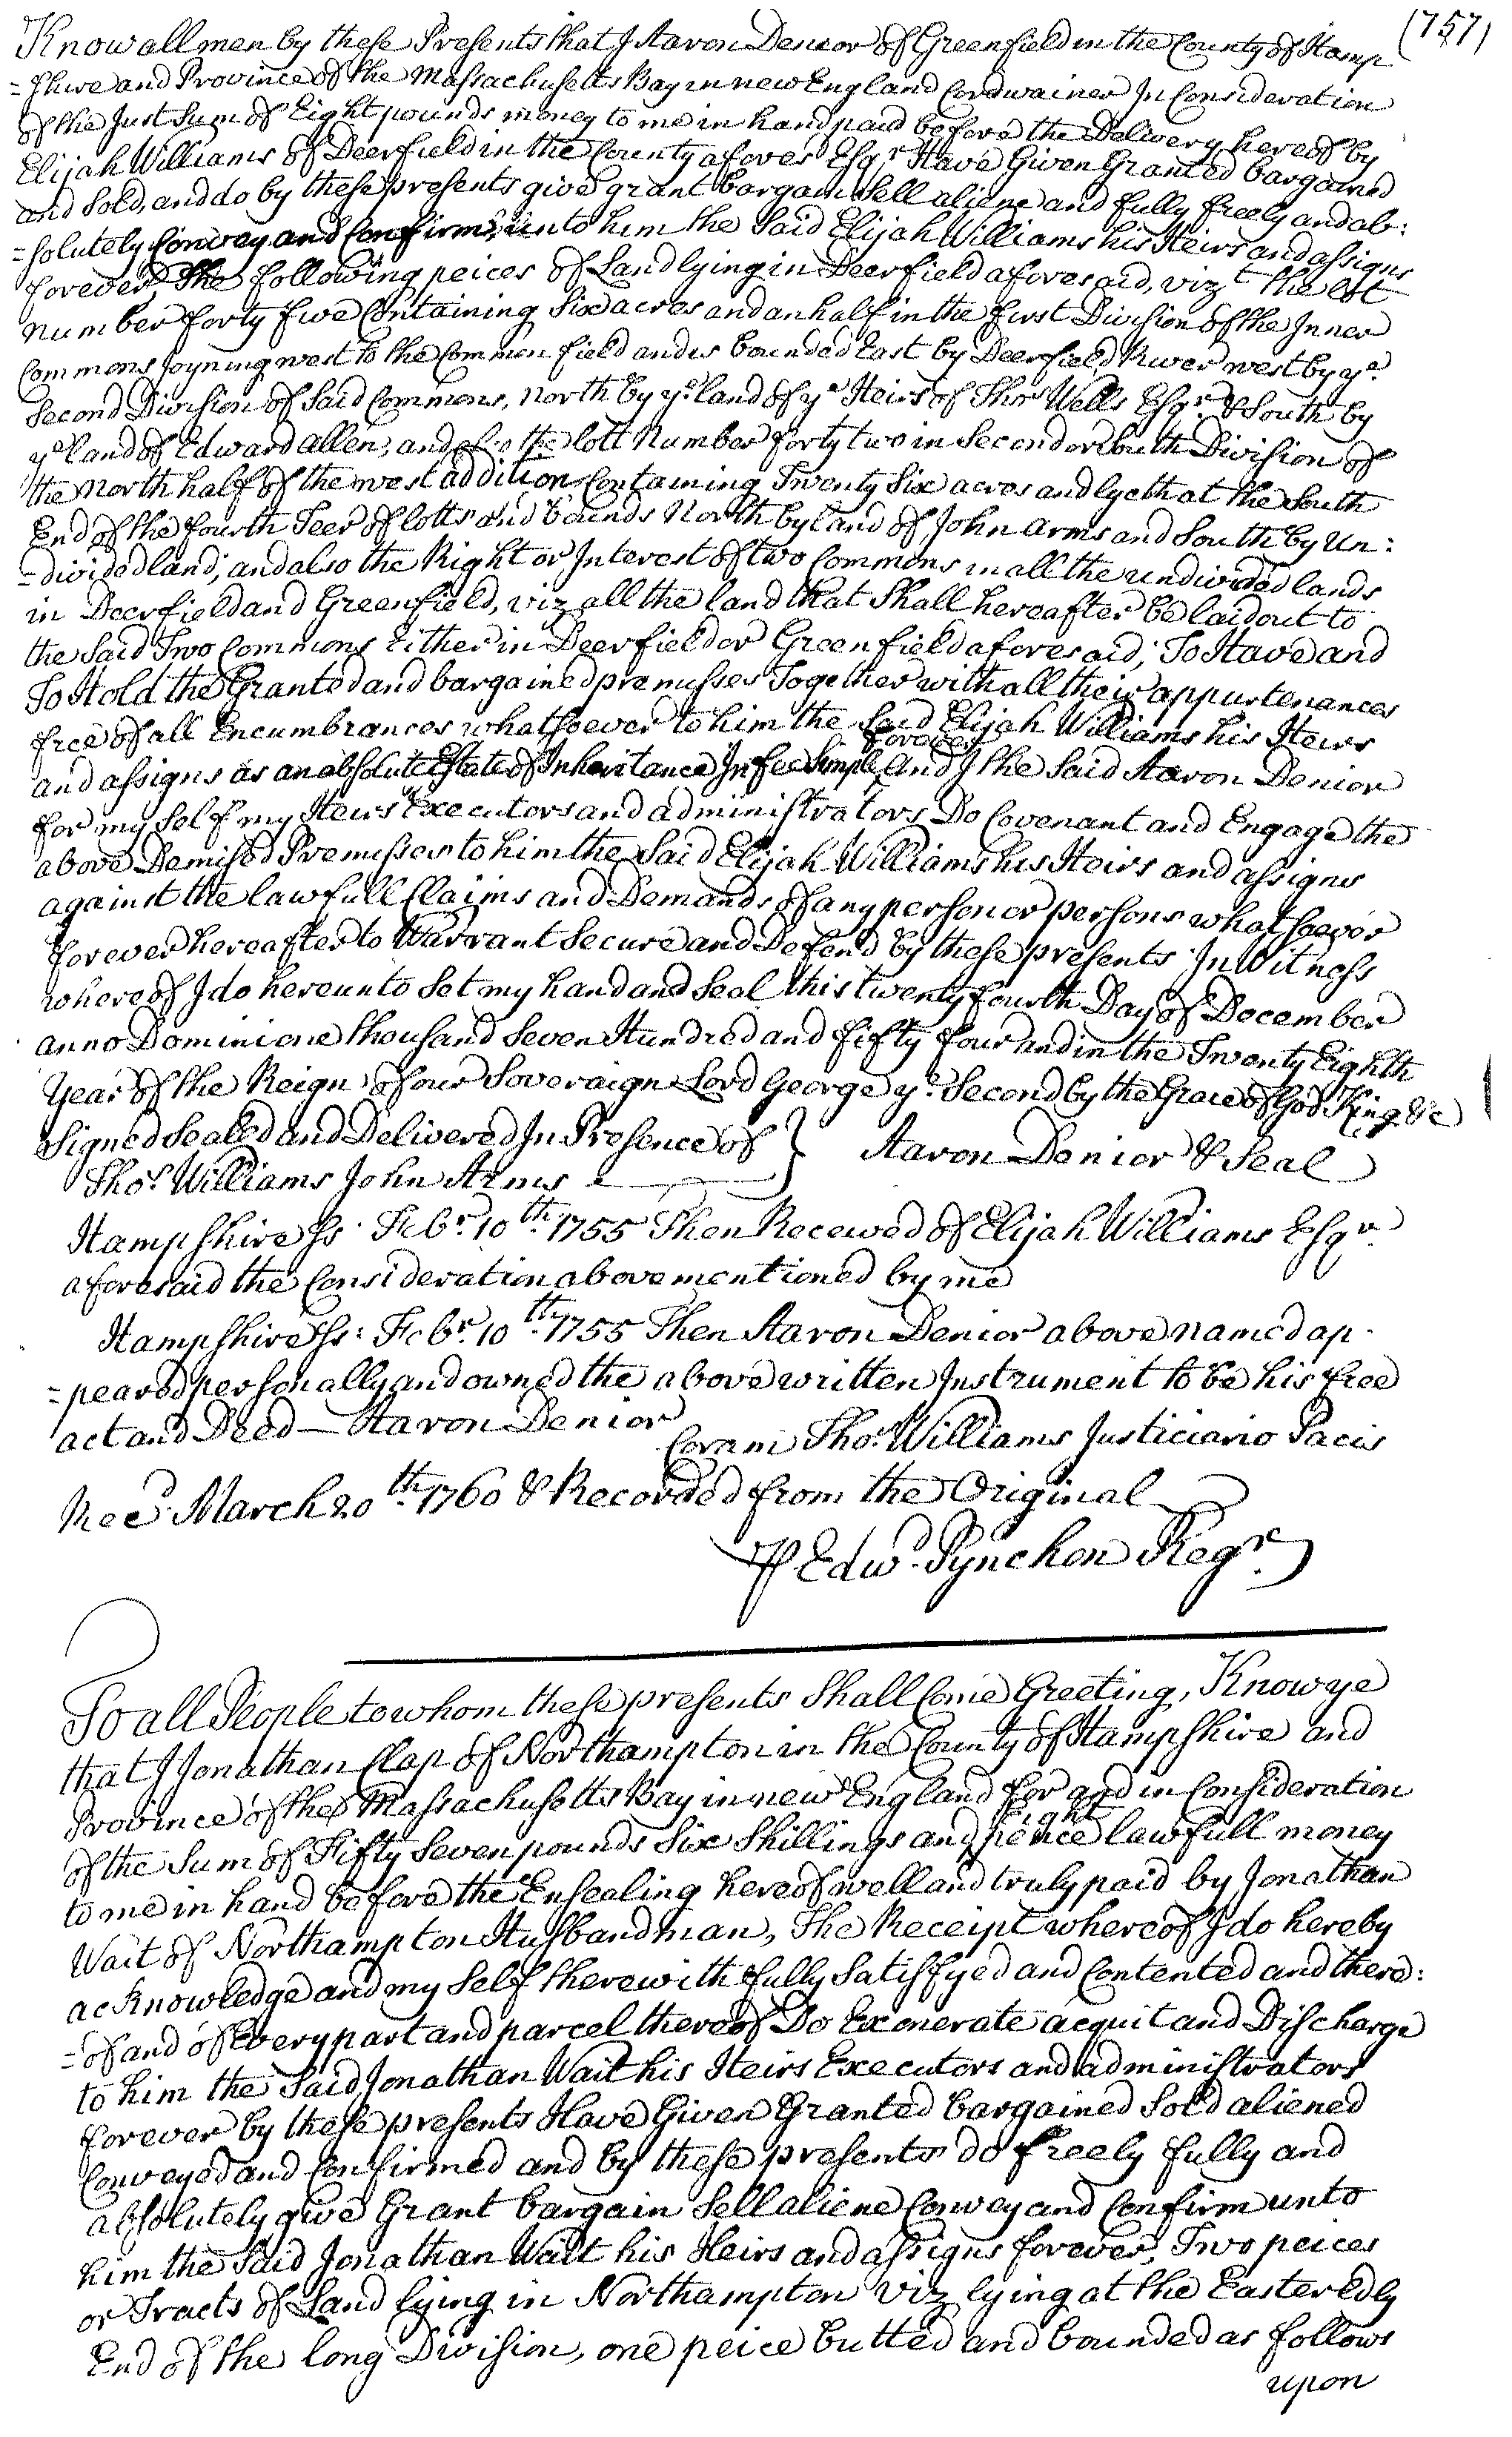 (757)
Know all men by these Presents that I Aaron Denior of Greenfield in the County of Hamp
=shire and Province of the Massachusetts Bay in new England Cordwainer In Consideration
of the Just Sum of Eight pounds money to me in hand paid before the Delivery hereof by
Elijah Williams of Deerfield in the County afores.d Esq.r Have Given Granted bargained
and Sold, and do by these presents give grant bargain Sell aliene and fully freely and ab:
=solutely Convey and Confirm unto him the Said Elijah Williams his Heirs and assigns
forever, The following peices of Land lying in Deerfield aforesaid, viz.t the lot
number forty five Containing Six acres and an half in the first Division of the Inner
Commons Joyning west to the Common field and is bounded East by Deerfield River west by y.e
Second Division of Said Commons, North by y.e land of y.e Heirs of Tho.s Wells Esq.r & South by
y.e land of Edward allen, and also the lott Number forty two in Second or South Division of
the North half of the west addition Containing Twenty Six acres and lyeth at the South
End of the fourth Teer of lotts and bounds North by land of John Arms and South by Un:
=divided land; and also the Right or Interest of two Commons in all the undivided lands
in Deerfield and Greenfield, viz all the land that Shall hereafter be laid out to
the Said Two Commons Either in Deerfield or Greenfield aforesaid; To Have and
To Hold the Granted and bargained premisses Together with all their appurtenances
free of all Encumbrances whatsoever to him the Said Elijah Williams his Heirs
and assigns as an absolute Estate of Inheritance In fee Simple forever And I the Said Aaron Denior
for my Self my Heirs Executors and administrators Do Covenant and Engage the
above Demised Premisses to him the Said Elijah Williams his Heirs and assigns
against the lawfull Claims and Demands of any person or persons whatsoever
forever hereafter to Warrant Secure and Defend by these presents In Witness
whereof I do hereunto Set my hand and Seal this twenty fourth Day of December
anno Domini one thousand Seven Hundred and fifty four and in the Twenty Eighth
Year of the Reign of our Soveraign Lord George y.e Second by the Grace of God King &c
Signed Sealed and Delivered In Presence of } Aaron Denior & Seal
Tho.s Williams John Arms
Hampshire ss. Feb.r 10.th 1755 Then Received of Elijah Williams Esq.r
aforesaid the Consideration above mentioned by me
Hampshire ss: Feb.r 10.th 1755 Then Aaron Denior above named ap
=peared personally and owned the above written Instrument to be his free
act and Deed — Aaron Denior
Coram Tho.s Williams Justiciario Pacis
Rec.d March 20.th 1760 & Recorded from the Original
P Edw.d Pynchon Reg.r
To all People to whom these presents Shall Come Greeting, Know ye
that I Jonathan Clap of Northampton in the County of Hampshire and
Province of the Massachusetts Bay in new England for and in Consideration
of the Sum of Fifty Seven pounds Six Shillings and Eight pence lawfull money
to me in hand before the Ensealing hereof well and truly paid by Jonathan
Wait of Northampton Husbandman, The Receipt whereof I do hereby
acknowledge and my Self therewith fully Satisfyed and Contented and there:
=of and of Every part and parcel thereof Do Exonerate acquit and Discharge
to him the Said Jonathan Wait his Heirs Executors and administrators
forever by these presents Have Given Granted bargained Sold aliened
Conveyed and Confirmed and by these presents do freely fully and
absolutely give Grant bargain Sell aliene Convey and Confirm unto
him the Said Jonathan Wait his Heirs and assigns forever, Two peices
or Tracts of Land lying in Northampton viz lying at the Easterdly
End of the long Division, one peice butted and bounded as follows
upon